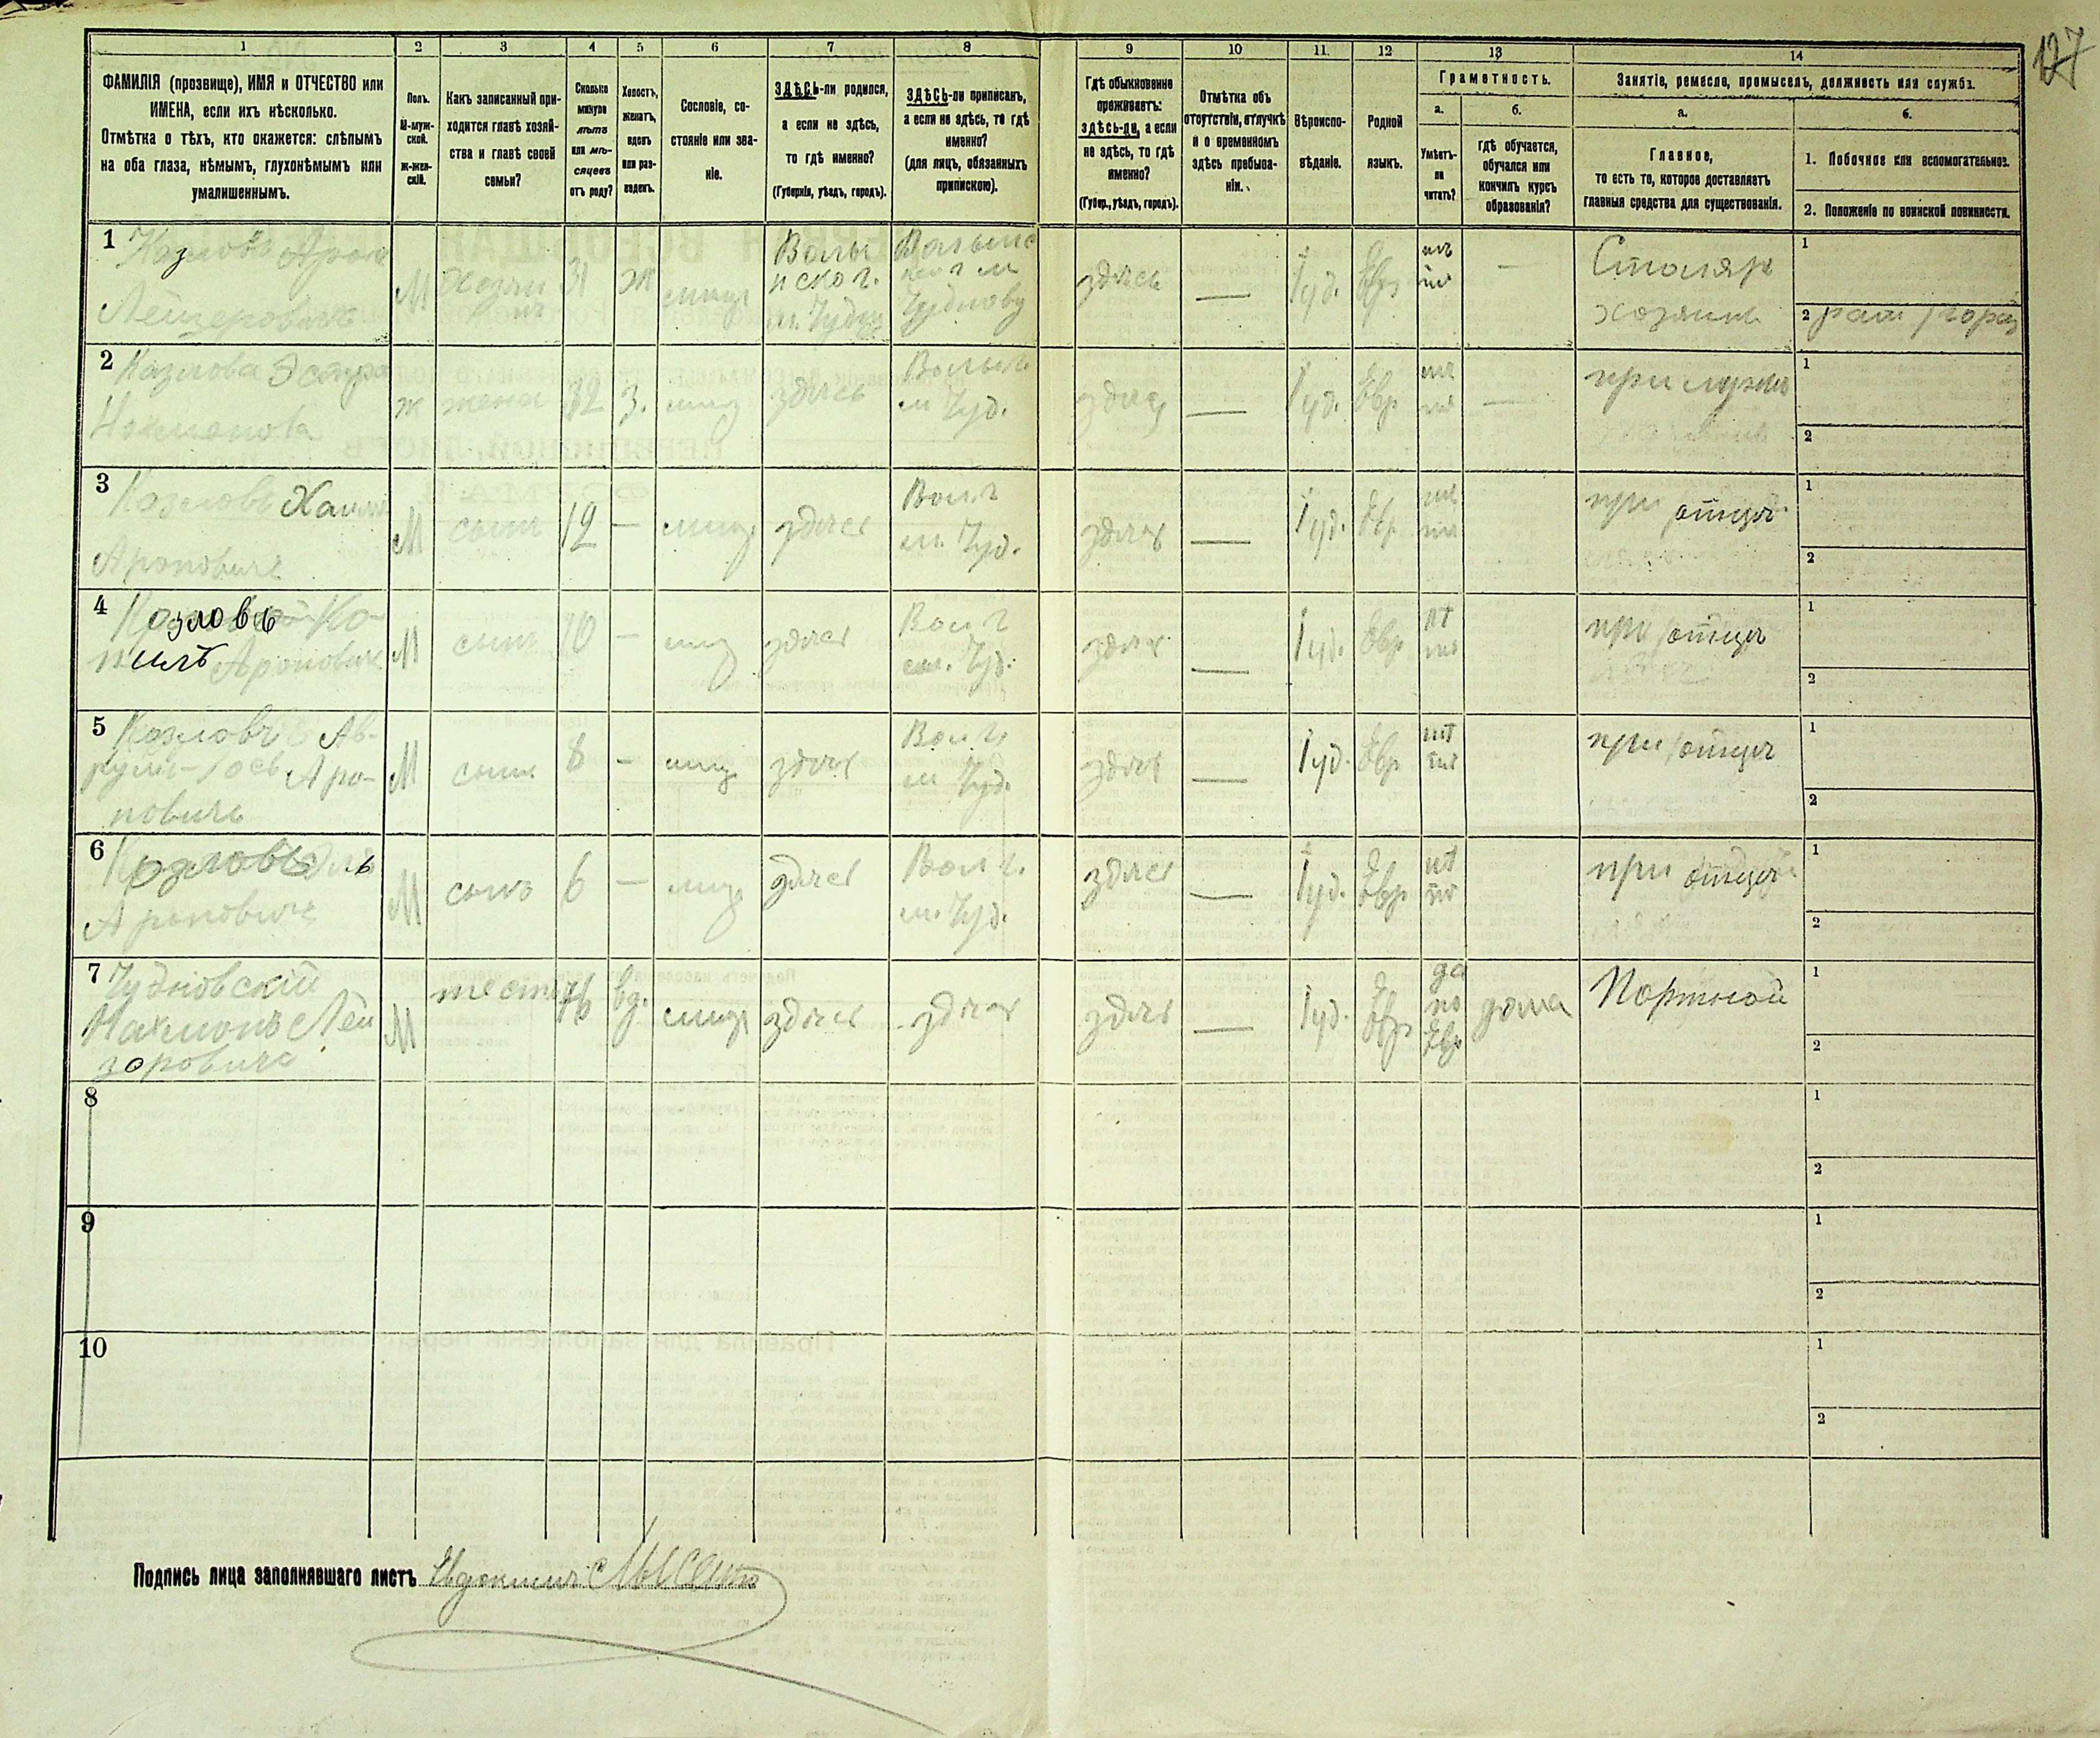 127
1 2 3 4 5 6 7 8 9 10 11. 12 13 14
ФАМИЛІЯ (прозвище), ИМЯ и ОТЧЕСТВО или
ИМЕНА, если ихъ нѣсколько.
Отмѣтка о тѣхъ, кто окажется: слѣпымъ
на оба глаза, нѣмымъ, глухонѣмымъ или
умалишеннымъ.
Полъ.
М-муж-
ской.
Ж-жен-
скій.
Какъ записанный при-
ходится главѣ хозяй-
ства и главѣ своей
семьи?
Сколько
минуло
лѣтъ
или мѣ-
сяцевъ
отъ роду?
Холостъ,
женатъ,
вдовъ
или раз-
веденъ.
Сословіе, со-
стояніе или зва-
ніе.
ЗДѢСЬ-ли родился,
а если не здѣсь,
то гдѣ именно?
(Губернія, уѣздъ, городъ).
ЗДѢСЬ-ли приписанъ,
а если не здѣсь, то гдѣ
именно?
(для лицъ, обязанныхъ
припискою).
Гдѣ обыкновенно
проживаетъ:
здѣсь-ли, а если
не здѣсь, то гдѣ
именно?
(Губер., уѣздъ, городъ).
Отмѣтка объ
отсутствіи, отлучкѣ
и о временномъ
здѣсь пребыва-
ніи.
Вѣроиспо-
вѣданіе.
Родной
языкъ.
Грамотность.
а.
Умѣетъ-
ли
читать?
б.
гдѣ обучается,
обучался или
кончилъ курсъ
образованія?
Занятіе, ремесло, промыселъ, должность или служба.
а.
Главное,
то есть то, которое доставляетъ
главныя средства для существованія.
б.
1. Побочное или вспомогательное.
2. Положеніе по воинской повинности.
1 Козловъ Арон
Лейзеровичъ
М
31
ж
мищ
Волы
нског.
м. Чудн
здѣсь
—
Іуд.
Евр
—
Столяръ
хозяинъ
1
2
2 Козлова Эстра
Нахманова
ж
жена
32
з.
мищ
здѣсь
м Чуд.
здѣсь
—
Іуд.
Евр
—
при мужѣ
1
2
3 Козловъ Хаим
Ароновичъ
М
сынъ
12
—
мищ
здѣсь
Вол. г
м. Чуд.
здѣсь
—
Іуд.
Евр
при отцѣ
1
2
4 Козловъ Ко-
пилъ Ароновичъ
М
сынъ
10
—
мищ
здѣсь
Вол. г
м. Чуд.
здѣсь
—
Іуд.
Евр
при отцѣ
1
2
5 Козловъ Ав-
румъ-Іось Аро-
новичъ
М
сынъ
8
—
мищ
здѣсь
Вол. г.
м Чуд.
здѣсь
—
Іуд.
Евр
при отцѣ
1
2
6 Козловъ
Ароновичъ
М
сынъ
6
—
мищ
здѣсь
Вол. г.
м. Чуд.
здѣсь
—
Іуд.
Евр
при отцѣ
1
2
7 Чудновскій
Нахмонъ Лей
зоровичъ
М
тесть
76
вд.
мищ
здѣсь
здѣсь
здѣсь
—
Іуд.
Евр
да
по
Евр
дома
Портной
1
2
8
1
2
9
1
2
10
1
2
Подпись лица заполнявшаго листъ Евдокимъ